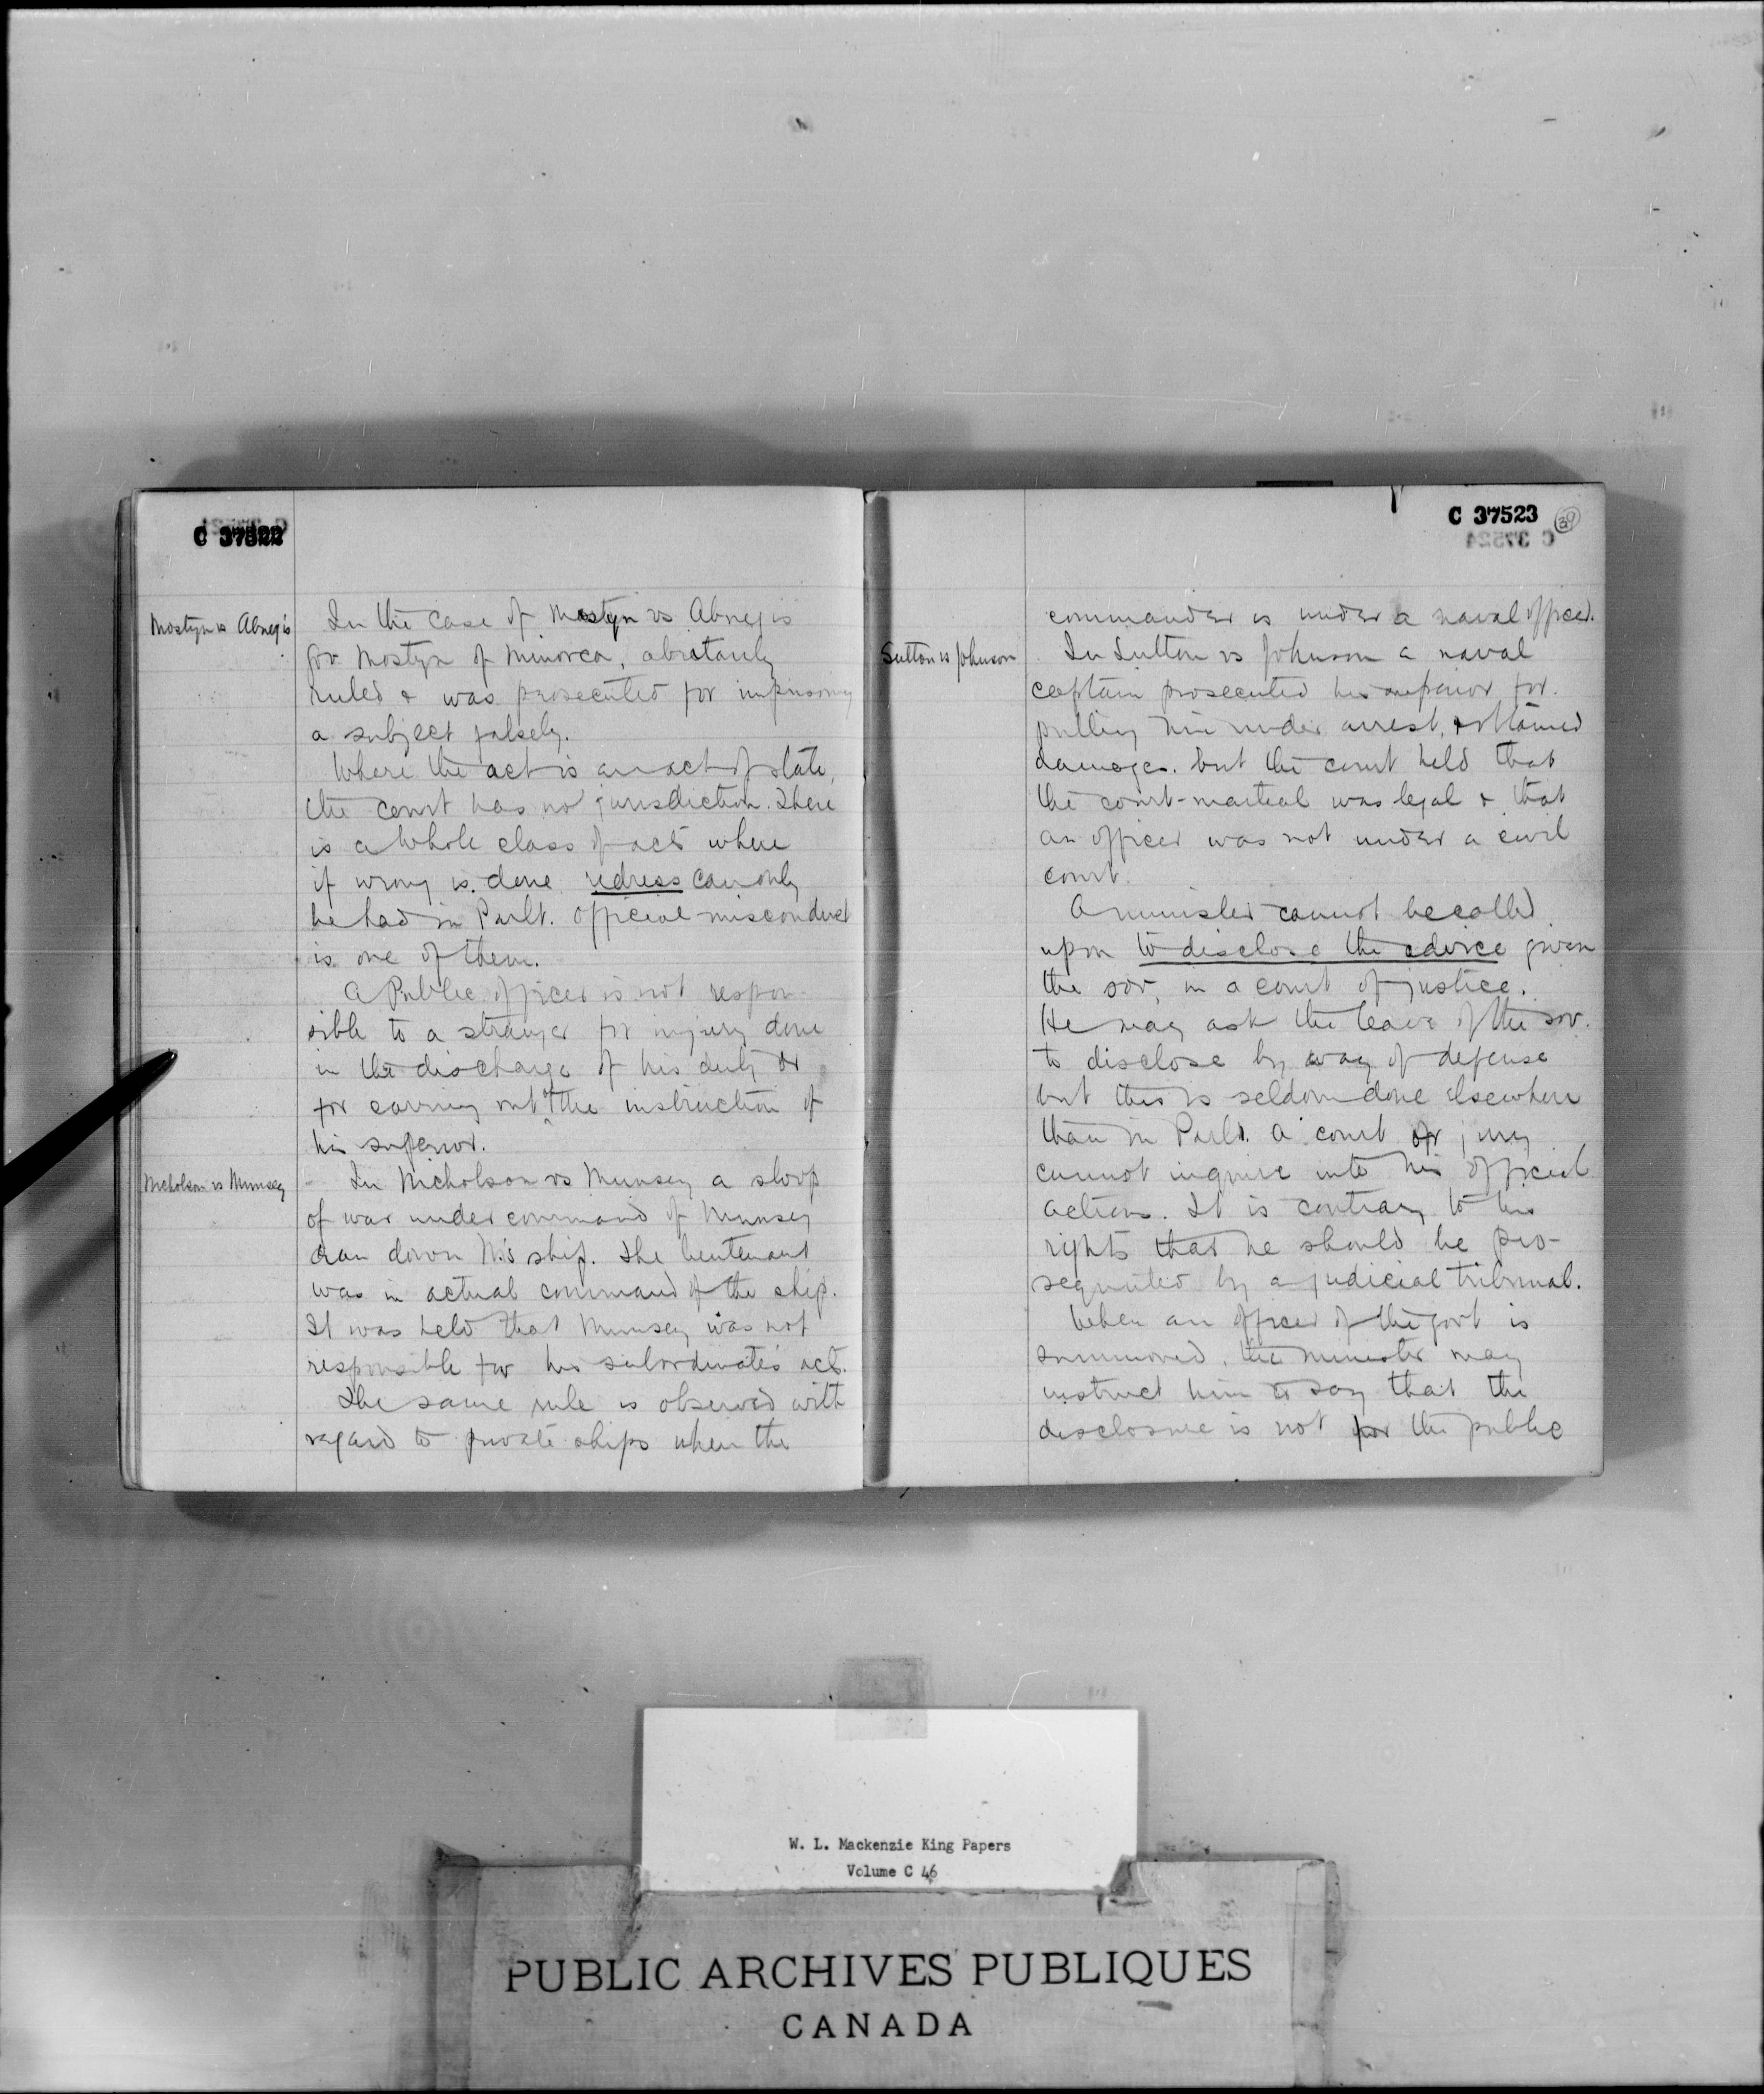 C 37522
Mostyn vs Abregis
In the case of Mostyn vs Abregis
Gov Mostyn of Minorca, abritarily
ruled & was prosecuted for imprisoning
a subject falsely.
Where the act is an act of state,
the court has no jurisdiction. There
is a whole class of acts where
if wrong is done redress can only
be had in Parlt. Official misconduct
is one of them.
A Public officer is not respon-
sible to a stranger for injury done
in the discharge of his duty or
for carrying out the instruction of
his superior.
Nicholson vs Munsey
In Nicholson vs Munsey a sloop
of war under command of Munsey
ran down N's ship. The lieutenant
was in actual command of the ship.
It was held that Munsey was not
responsible for his subordinate's act.
The same rule is observed with
regard to private ships when the
C 37523
39
C 37524
commander is under a naval officer.
Sutton vs Johnson
In Sutton vs Johnson a naval
captain prosecuted his superior for
putting him under arrest, & obtained
damages. but the court held that
the court-martial was legal & that
an officer was not under a civil
court.
A minister cannot be called
upon to disclose the advice given
the sov, in a court of justice.
He may ask the leave of the sov.
to disclose by way of defense
but this is seldom done elsewhere
than in Parlt. A court or jury
cannot inquire into his official
actions. It is contrary to his
rights that he should be pro-
sequuted by a judicial tribunal.
When an officer of the govt is
summoned, the minister may
instruct him to say that the
disclosure is not for the public
W. L. Mackenzie King Papers
Volume C 46
PUBLIC ARCHIVES PUBLIQUES
CANADA